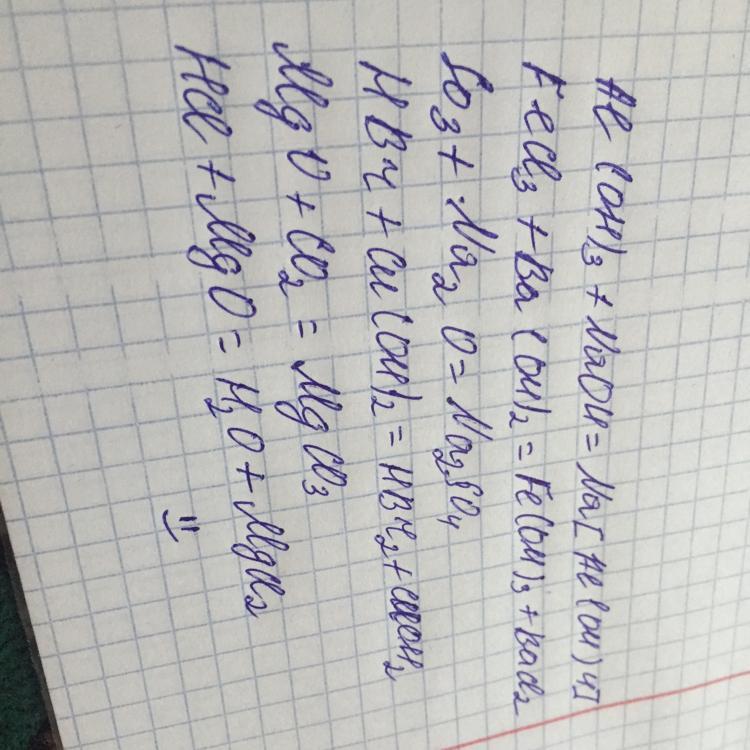 Al(OH)3 + NaOH = Na[Al(OH)4]
FeCl3 + Ba(OH)2 = Fe(OH)3 + BaCl2
SO3 + Na2O = Na2SO4
HBr + Cu(OH)2 = HBr2 +
MgO + CO2 = MgCO3
HCl + MgO = H2O + MgCl2